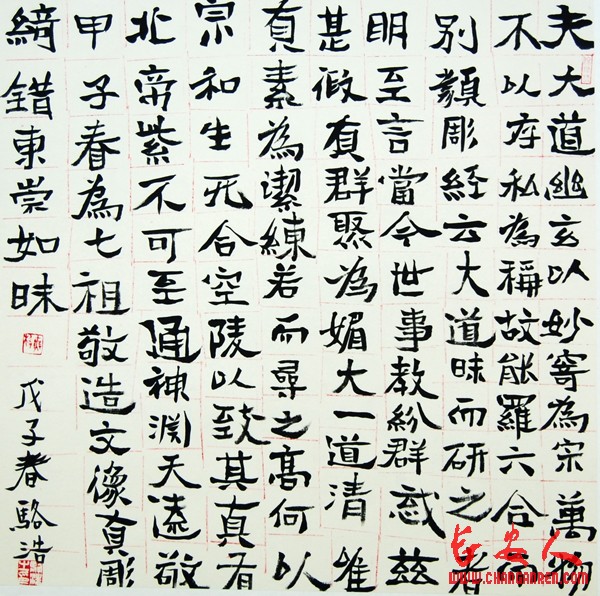 夫大道幽玄以妙寄為宗萬物
不以存私為稱故能羅六合而
别顡彫經云大道昧而研之者
明至言當今世事教紛群惑茲
甚假有群聚為媚大一道清唯
真素為潔練若而尋之高何以
宗和生死合空陵以致其真看
北帝紫不可至通神淵天遠敬
甲子春為七祖敬造文像真彫
綺錯東崇如昧
戊子春駱浩
长安人
WWW.CHANGANREN.COM